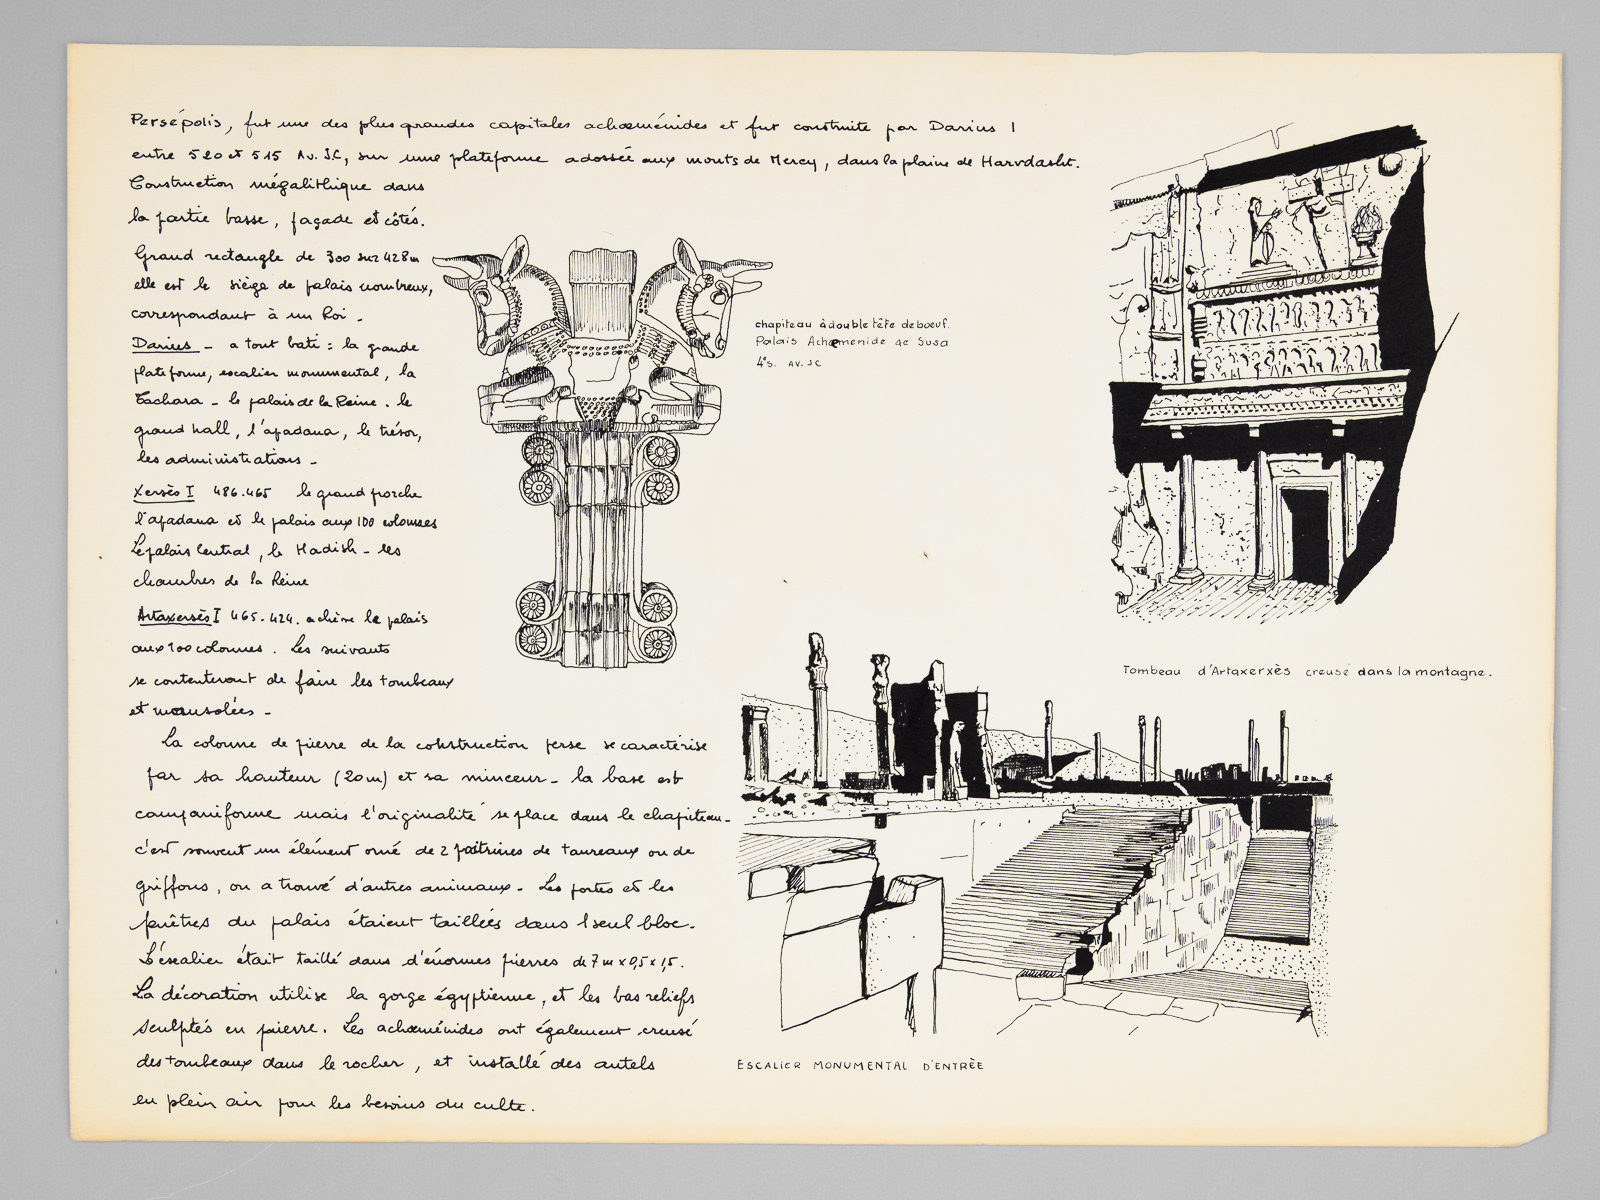 Persépolis, fut une des plus grandes capitales achæménides et fut construite par Darius I
entre 520 et 515 Av. J.C, sur une plateforme adossée aux monts de Mercy, dans la plaine de Harvdasht.
Construction mégalithique dans
la partie basse, façade et côtés.
Grand rectangle de 300 sur 428m
elle est le siège de palais nombreux,
correspondant à un Roi.
Darius - a tout bati : la grande
plateforme, escalier monumental, la
Tachara - le palais de la Reine. le
grand hall, l'apadana, le trésor,
les administrations -
Xersès I 486.465 le grand porche
l'apadana et le palais aux 100 colonnes
Le palais Central, le Hadish - les
chambres de la Reine
Artaxersès I 465-424. achève le palais
aux 100 colonnes. Les suivants
se contenteront de faire les tombeaux
et mausolées -
La colonne de pierre de la construction perse se caractérise
par sa hauteur (20m) et sa minceur - la base est
campaniforme mais l'originalité se place dans le chapiteau -
c'est souvent un élément orné de 2 poitrines de taureaux ou de
griffons, on a trouvé d'autres animaux - Les portes et les
fenêtres du palais étaient taillées dans 1 seul bloc.
L'éscalier était taillé dans d'énormes pierres de 7m x 0,5 x 1,5.
La décoration utilise la gorge égyptienne, et les bas reliefs
sculptés en pierre. Les achæménides ont également creusé
des tombeaux dans le rocher, et installé des autels
en plein air pour les besoins du culte.
chapiteau à double tête de bœuf.
Palais Achæmenide de Susa
4e s. AV. JC
Tombeau d'Artaxerxès creusé dans la montagne.
ESCALIER MONUMENTAL D'ENTRÈE